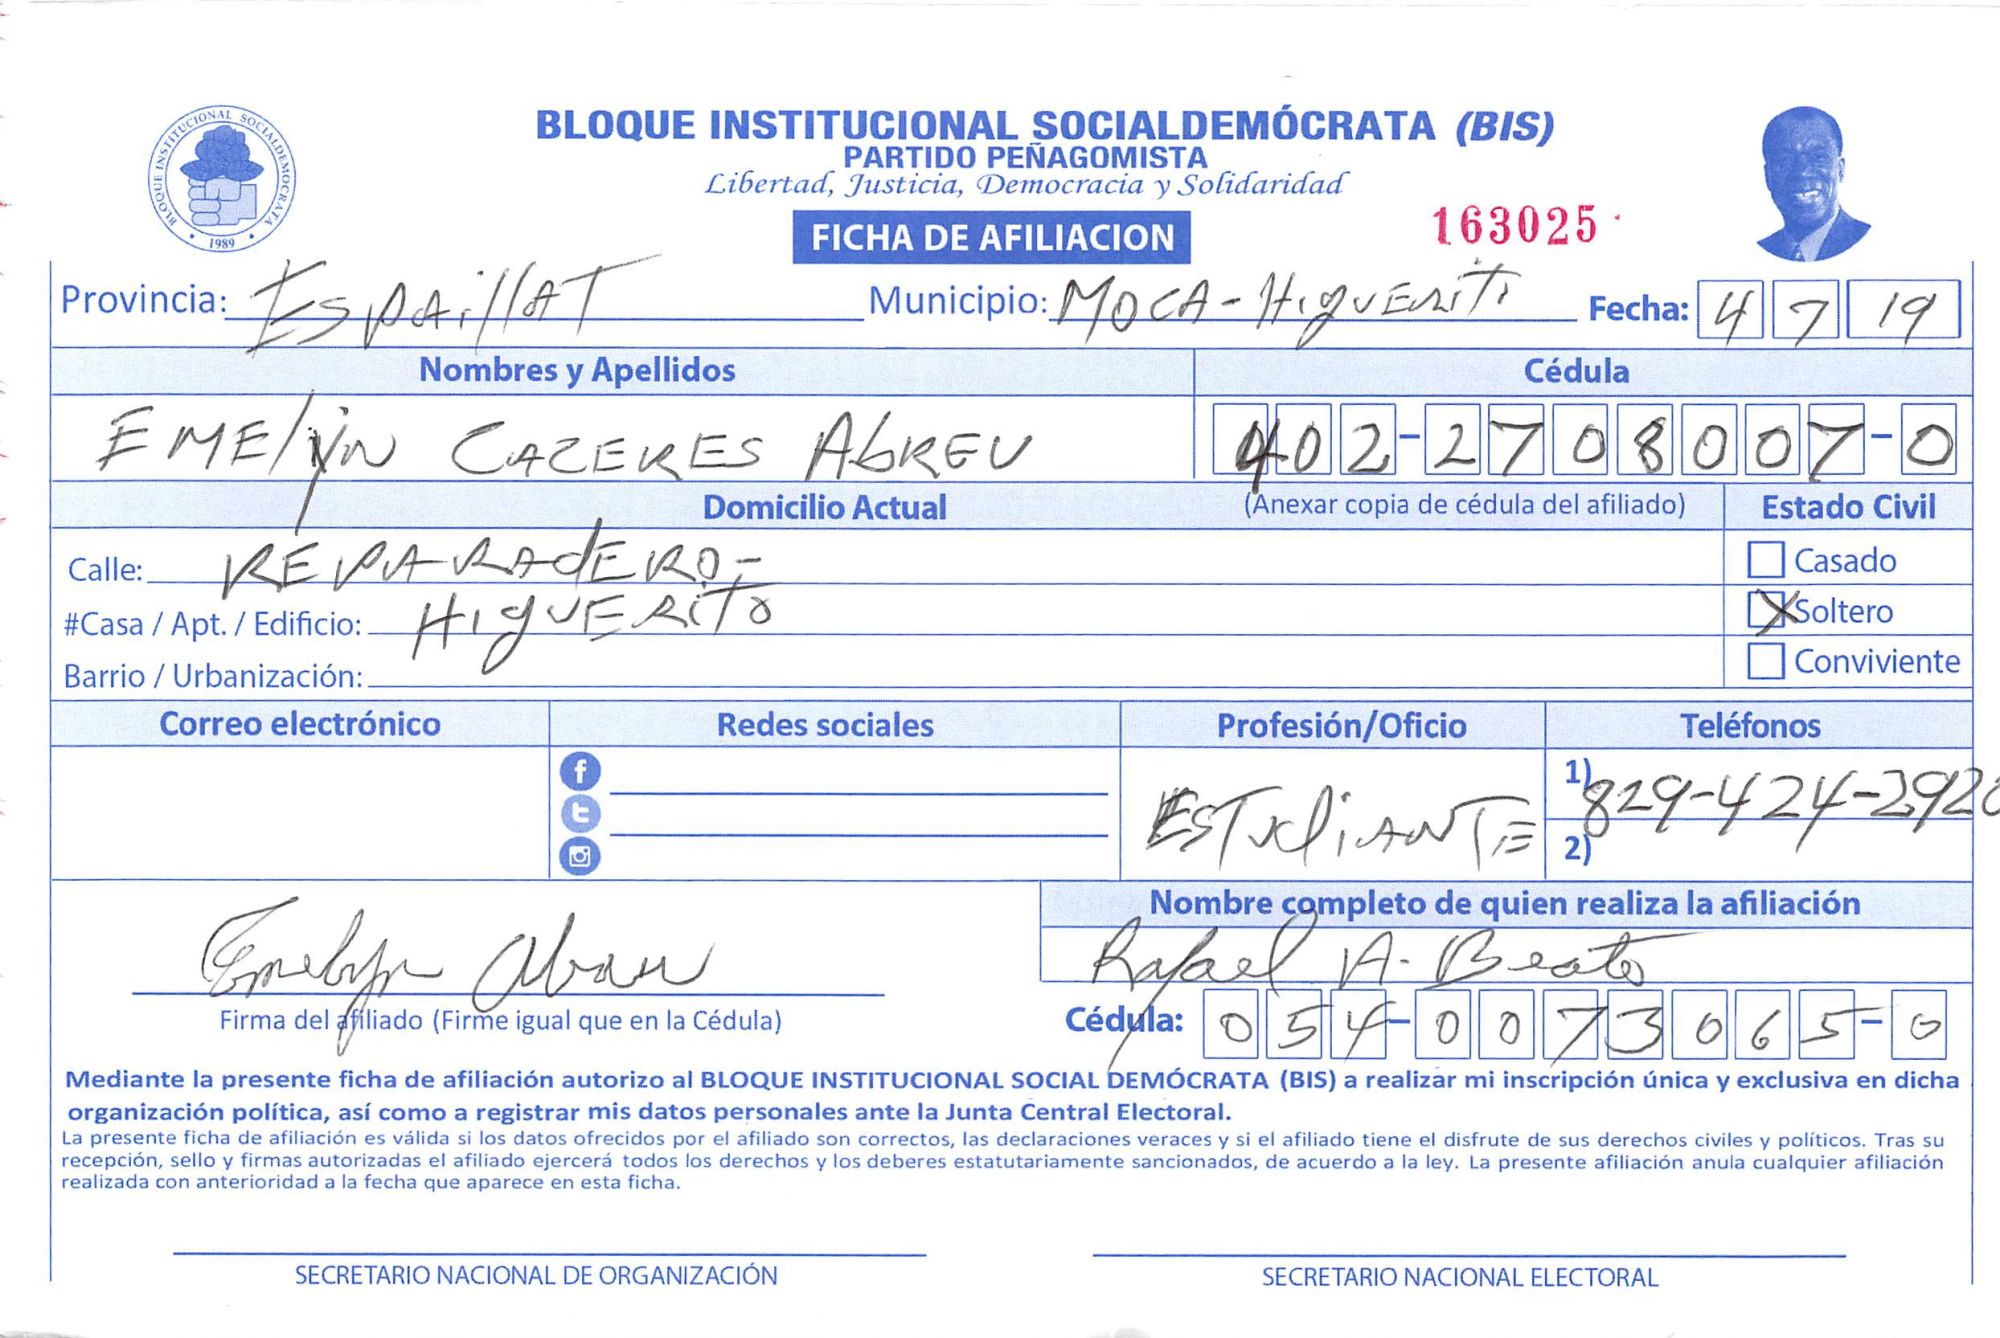 BLOQUE INSTITUCIONAL SOCIALDEMOCRATA
1989
BLOQUE INSTITUCIONAL SOCIALDEMÓCRATA (BIS)
PARTIDO PEÑAGOMISTA
Libertad, Justicia, Democracia y Solidaridad
FICHA DE AFILIACION
163025
Provincia: ESPAillAT Municipio: MOCA-HigUERiTi Fecha: 4 7 19
Nombres y Apellidos Cédula
EMElyN CAZERES AbREU 402-2708007-0
Domicilio Actual (Anexar copia de cédula del afiliado) Estado Civil
Calle: REPARAdERO- Casado
#Casa / Apt. / Edificio: HIgUERiTo X Soltero
Barrio / Urbanización: Conviviente
Correo electrónico Redes sociales Profesión/Oficio Teléfonos
ESTudiANTE 1) 829-424-2920
2)
Nombre completo de quien realiza la afiliación
Emelyn Abreu Rafael A. Beato
Firma del afiliado (Firme igual que en la Cédula) Cédula: 054-0073065-0
Mediante la presente ficha de afiliación autorizo al BLOQUE INSTITUCIONAL SOCIAL DEMÓCRATA (BIS) a realizar mi inscripción única y exclusiva en dicha
organización política, así como a registrar mis datos personales ante la Junta Central Electoral.
La presente ficha de afiliación es válida si los datos ofrecidos por el afiliado son correctos, las declaraciones veraces y si el afiliado tiene el disfrute de sus derechos civiles y políticos. Tras su
recepción, sello y firmas autorizadas el afiliado ejercerá todos los derechos y los deberes estatutariamente sancionados, de acuerdo a la ley. La presente afiliación anula cualquier afiliación
realizada con anterioridad a la fecha que aparece en esta ficha.
SECRETARIO NACIONAL DE ORGANIZACIÓN SECRETARIO NACIONAL ELECTORAL